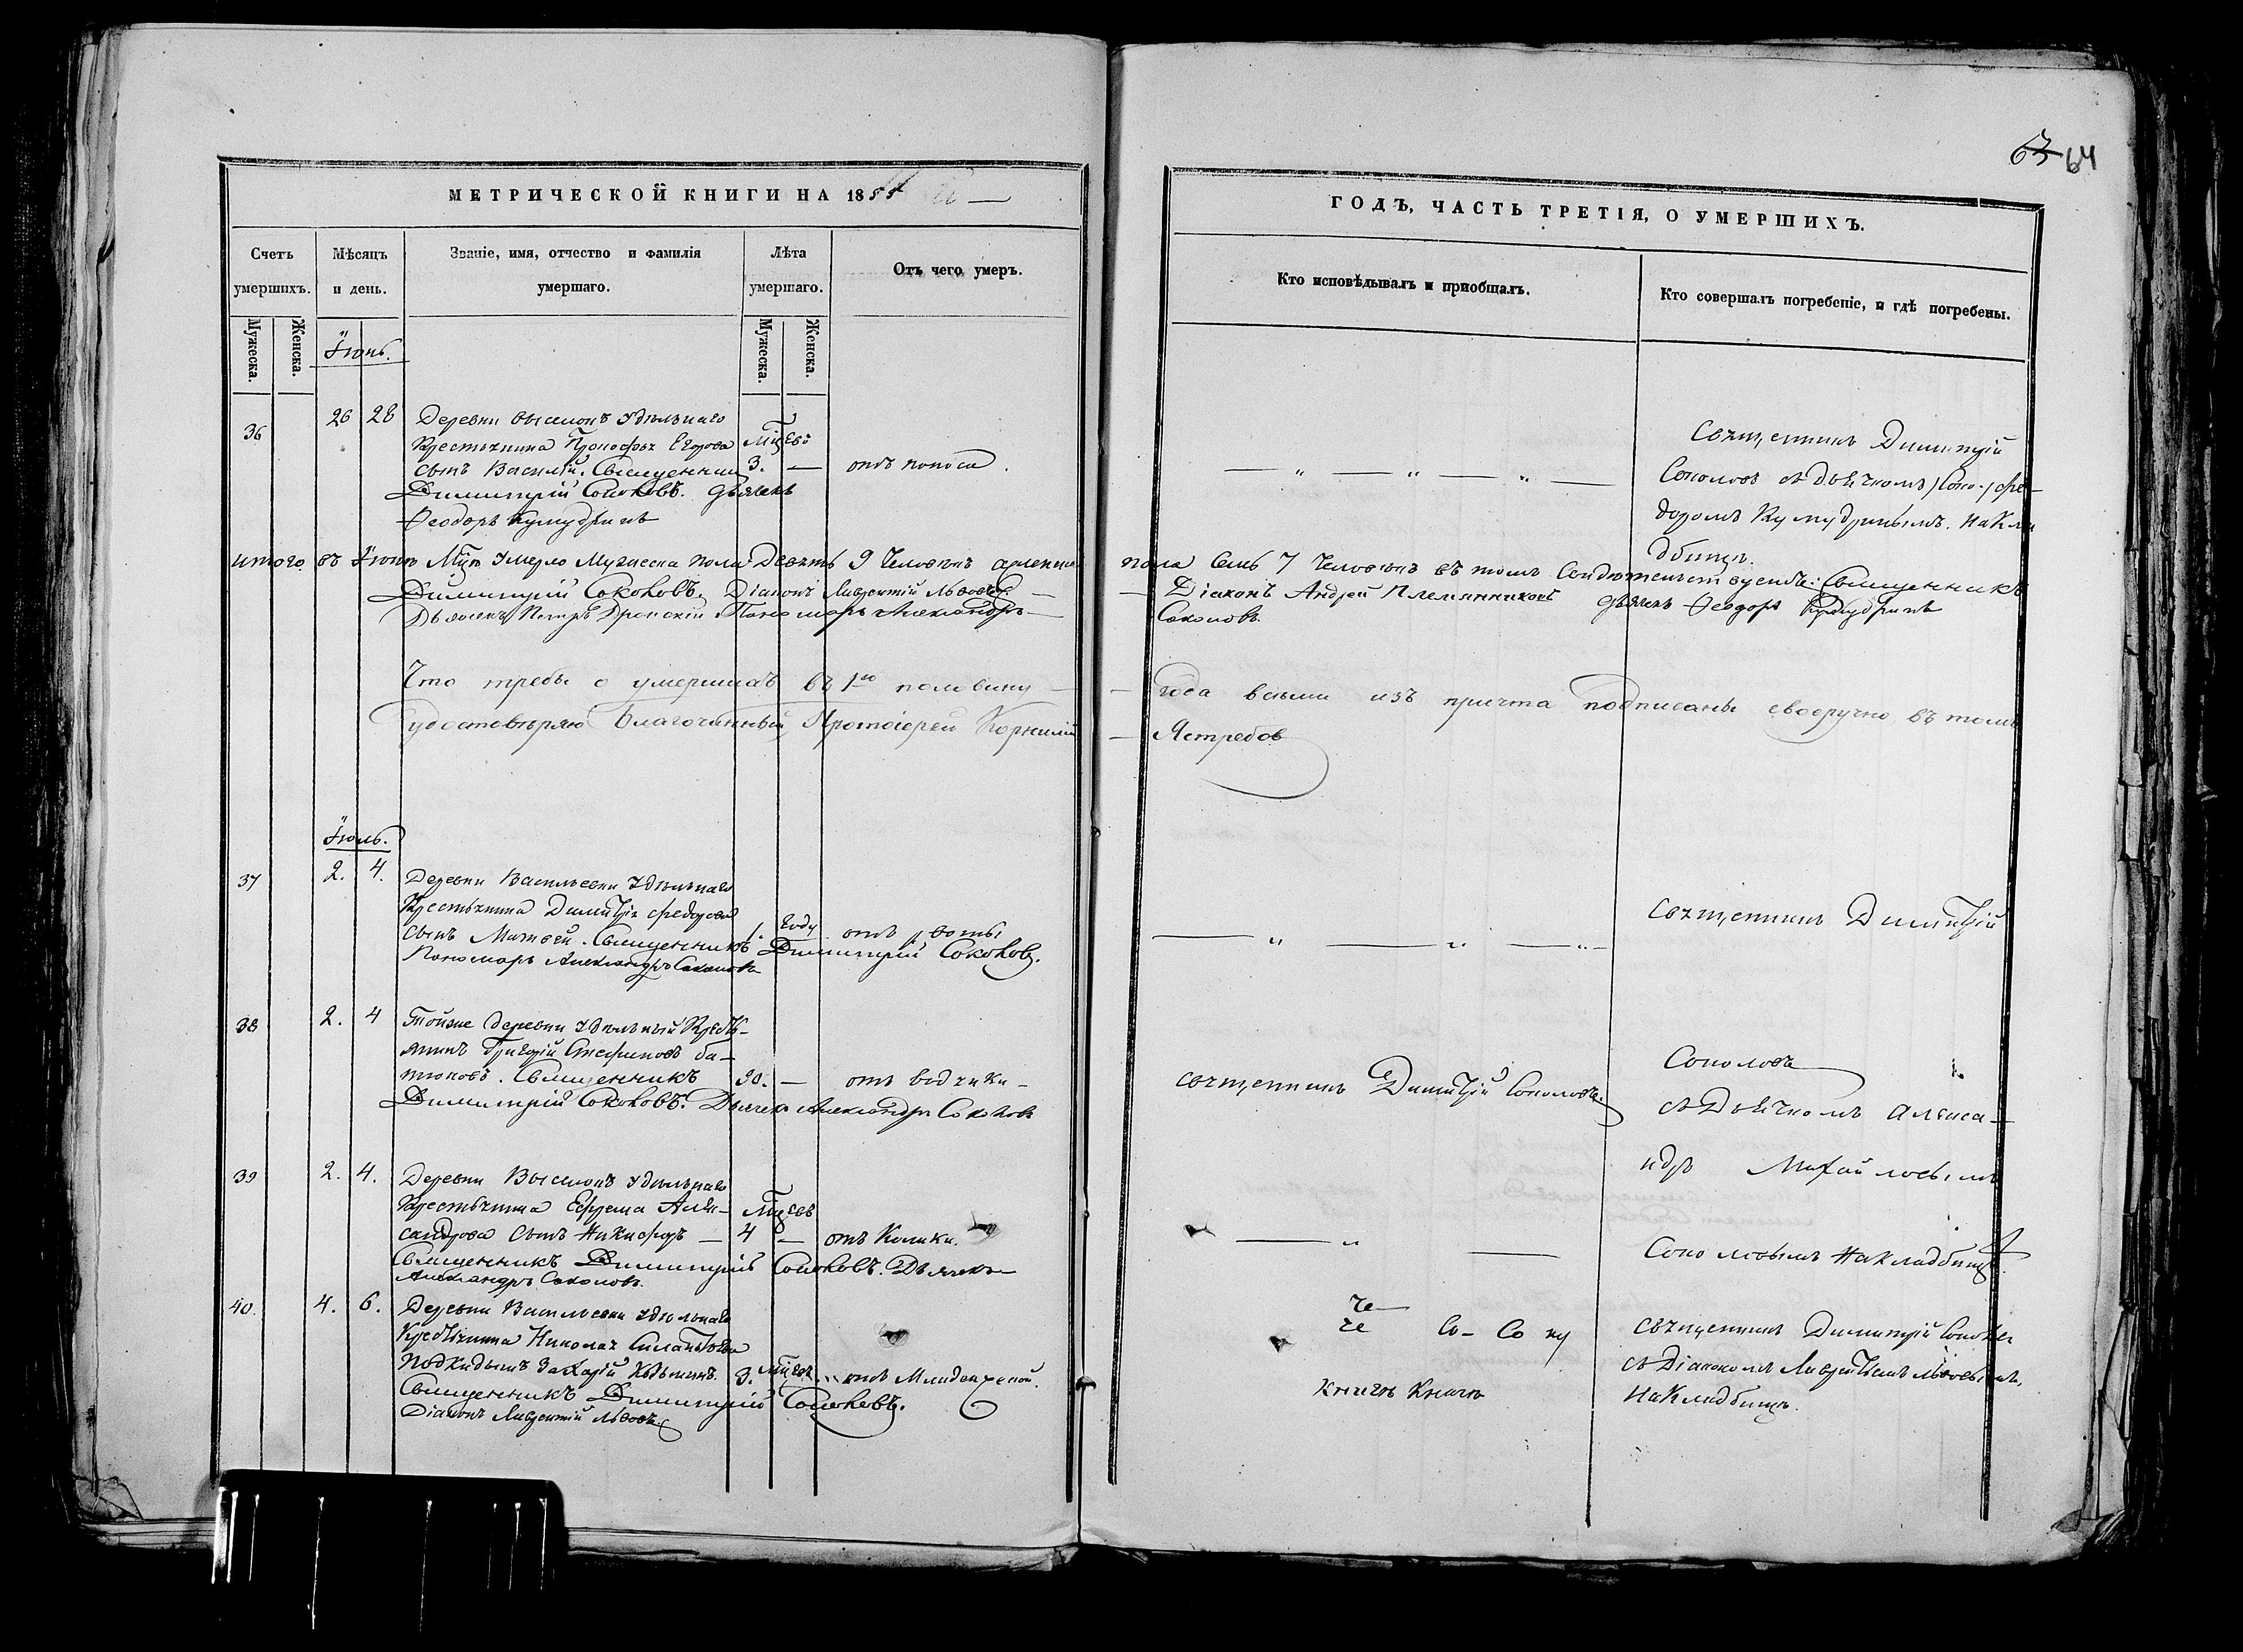 63 64
МЕТРИЧЕСКОЙ КНИГИ НА 1855 й
Счетъ умершихъ.
Мѣсяцъ и день.
Званіе, имя, отчество и фамилія умершаго.
Лѣта умершаго.
Отъ чего умеръ.
Мужеска.
Женска.
Мужеска.
Женска.
Іюнь.
36
26 28
Деревни Выселокъ Удѣльнаго
Крестьянина Прокофья Егорова
сынъ Василій. Священникъ
Димитрій Соколовъ. Дьячекъ
Ѳеодоръ Кумудринъ
Мцевъ
3. —
отъ поноса.
Итого въ Іюнѣ Мцѣ Умерло Мужеска пола Девять 9 Человѣкъ а женска
Димитрій Соколовъ. Діаконъ Лаврентій Львовъ
Дьячекъ Петръ Пономарь Александръ
Что требы о умершихъ въ 1ую половину
удостовѣряю Благочинный Протоіерей Корнилій
Іюль.
37
2. 4.
Деревни Васильевки Удѣльнаго
Крестьянина Димитрія Федорова
сынъ Матвей. Священникъ Димитрій Соколов.
Пономарь Александръ Соколовъ
1. Году
отъ рвоты
38
2. 4
Тойже деревни Удѣльный Крестьянинъ Григорій Стефановъ ба-
тюковъ. Священникъ
Димитрій Соколовъ. Дьячекъ Александръ Соколовъ
30. —
отъ водянки
39
2. 4.
Деревни Выселокъ Удѣльнаго
Крестьянина Ефрема Алек-
сандрова Сынъ Никифоръ —
Священникъ Димитрій Соколовъ. Дьячекъ
Александръ Соколовъ.
Мцевъ
4 —
отъ Колики.
40.
4. 6.
Деревни Васильевки Удѣльнаго
Крестьянина Николая
подкидышъ Захарій
Священникъ Димитрій Соколовъ.
Діаконъ Лаврентій Львовъ
3. мцевъ
отъ Младенческой.
ГОДЪ, ЧАСТЬ ТРЕТІЯ, О УМЕРШИХЪ.
Кто исповѣдывалъ и пріобщалъ.
Кто совершалъ погребеніе, и гдѣ погребены.
Священникъ Димитрій
Соколовъ съ Дьячкомъ Фе-
доромъ Кумудринымъ. На Кла
дбищѣ.
пола Семь 7 Человѣкъ въ томъ Свидѣтельствуемъ: Священникъ
Діаконъ Андрей Племянниковъ Дьячекъ Ѳеодоръ Кумудринъ
Соколовъ.
года всѣми изъ причта подписаны своеручно въ томъ
Ястребов
Священникъ Димитрій
Священникъ Димитрій Соколовъ.
Соколовъ
съ Дьячкомъ Алекса-
ндр Михайловымъ
Соколовымъ На Кладбищѣ.
Че
че Со- Со ку
книгъ Книги
Священникъ Димитрій Соколов
съ Діакономъ Лаврентіемъ Львовымъ,
На Кладбищѣ.